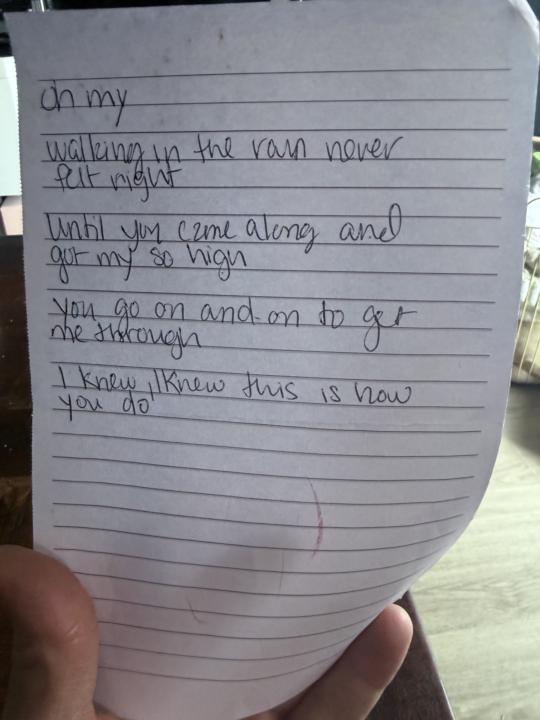 oh my
walking in the rain never
felt right
until you came along and
got my so high
you go on and on to get
me through
I knew, I knew this is how
you do